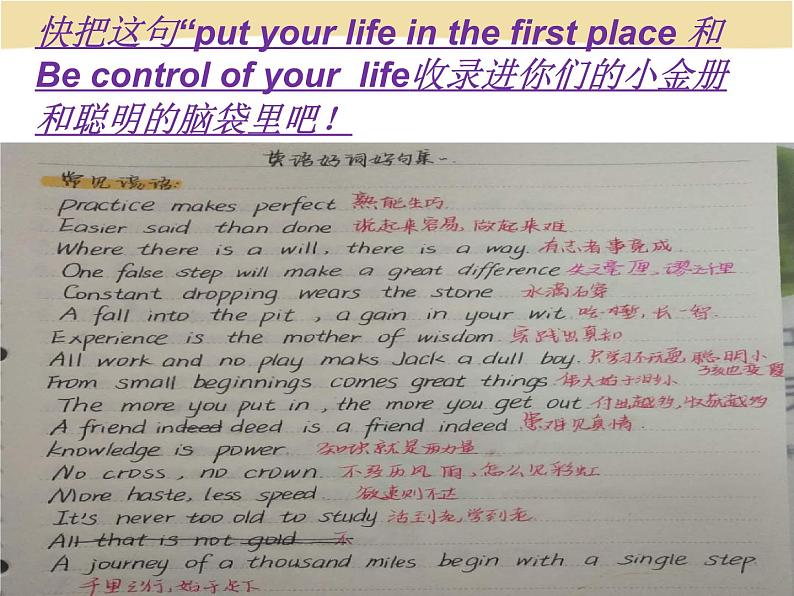 快把这句“put your life in the first place 和
Be control of your life收录进你们的小金册
和聪明的脑袋里吧！
英语好词好句集
常见谚语:
practice makes perfect 熟能生巧
Easier said than done 说起来容易, 做起来难
Where there is a will, there is a way. 有志者事竟成.
One false step will make a great difference 失之毫厘, 谬之千里
Constant dropping wears the stone 水滴石穿
A fall into the pit, a gain in your wit. 吃一堑, 长一智.
Experience is the mother of wisdom. 实践出真知
All work and no play maks Jack a dull boy. 只学习不玩耍, 聪明小
孩也变傻
From small beginnings comes great things. 伟大始于渺小
The more you put in, the more you get out 付出越多, 收获越多
A friend indeed deed is a friend indeed 患难见真情.
knowledge is power. 知识就是力量
No cross, no crown. 不经历风雨, 怎么见彩虹
More haste, less speed 欲速则不达
It's never too old to study 活到老, 学到老.
All that is not gold 不
A journey of a thousand miles begin with a single step
千里之行, 始于足下